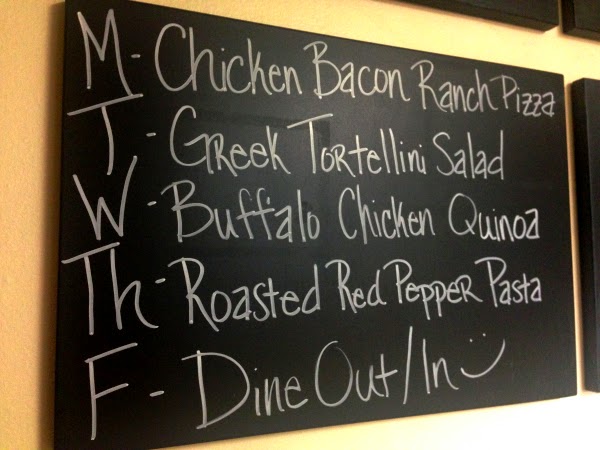 M - Chicken Bacon Ranch Pizza
T - Greek Tortellini Salad
W - Buffalo Chicken Quinoa
Th - Roasted Red Pepper Pasta
F - Dine Out/In :)